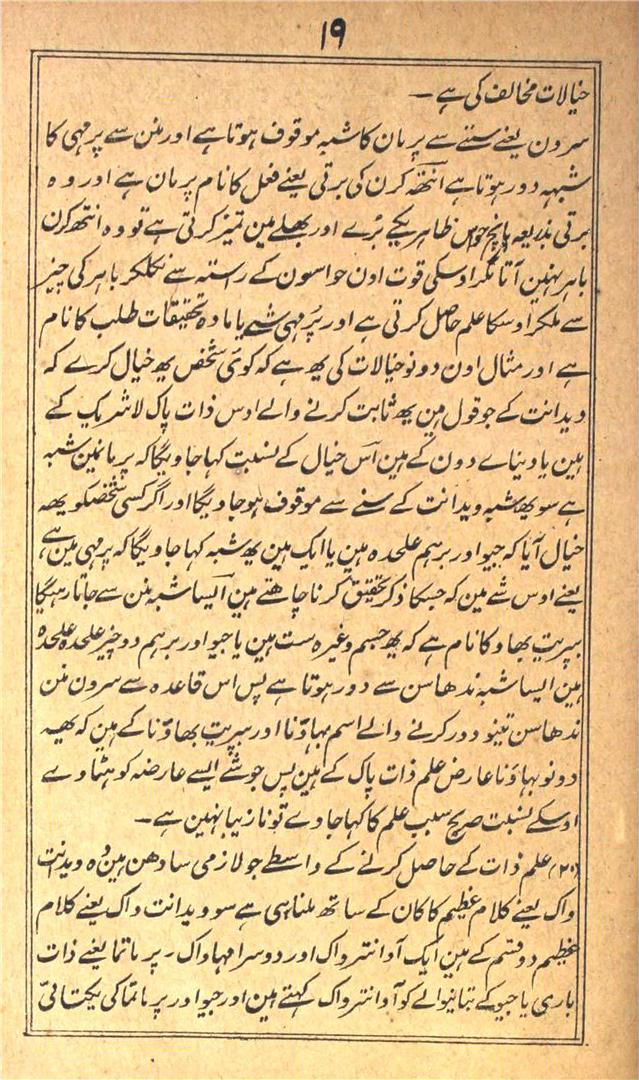 ۱۹
خیالات مخالف کی ہے ۔
سرون یعنے سننے سے پرمان کا شبہ موقوف ہوتا ہے اور منن سے پرمہی کا
شبہہ دور ہوتا ہے انتھہ کرن کی برتی یعنے فعل کا نام پرمان ہے اور وہ
برتی بذریعہ پانچ حواس ظاہر یکے بُرے اور بھلے مین تمیز کرتی ہے تو وہ انتھہ کرن
باہر نہین آتا مگر اوسکی قوت اون حواسون کے رستہ سے نکلکر باہر کی چیز
سے ملکر اوسکا علم حاصل کرتی ہے اور پرمہی شے یا مادہ تحقیقات طلب کا نام
ہے اور مثال اون دونو خیالات کی یہ ہے کہ کوئی شخص یہ خیال کرے کہ
ویدانت کے جو قول مین یہ ثابت کرنے والے اوس ذات پاک لاشریک کے
ہین یا دنیاے دون کے ہین اس خیال کے نسبت کہا جاویگا کہ پرمانمین شبہ
ہے سو یہ شبہ ویدانت کے سننے سے موقوف ہوجاویگا اور اگر کسی شخصکو یھہ
خیال آیا کہ جیو اور برہم علحدہ ہین یا ایک ہین یہ شبہ کہا جاویگا کہ پرمہی مین ہے
یعنے اوس شے مین کہ جسکا ذکر تحقیق کرنا چاھتے ہین ایسا شبہ منن سے جاتا رہیگا
بپریت بھاو کا نام ہے کہ یہ جسم وغیرہ ست ہین یا جیو اور برہم دو چیز علحدہ علحدہ
ہین ایسا شبہ ندھاسن سے دور ہوتا ہے پس اس قاعدہ سے سرون منن
ندھاسن تینو دور کرنے والے اسم بہاؤنا اور بپریت بھاؤنا کے ہین کہ یھہ
دونو بہاؤنا عارض علم ذات پاک کے ہین پس جو شے ایسے عارضہ کو ہٹاوے
اوسکے نسبت صریح سبب علم کا کہا جاوے تو نازیبا نہین ہے ۔
(۲۰) علم ذات کے حاصل کرنے کے واسطے جو لازمی سادھن ہین وہ ویدانت
واک یعنے کلام عظیم کا کان کے ساتھ ملنا ہی ہے سو ویدانت واک یعنے کلام
عظیم دو قسم کے ہین ایک آوانتر واک اور دوسرا مہاواک ۔ پرماتما یعنے ذات
باری یا جیو کے بتانیوالے کو آوانتر واک کہتے ہین اور جیو اور پرماتما کی یکتائی